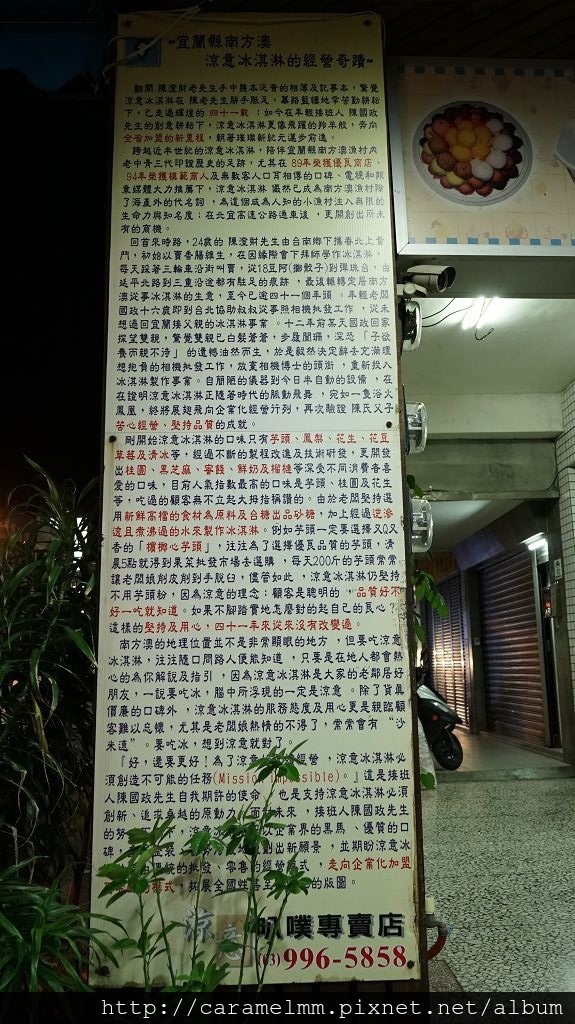 ~宜蘭縣南方澳
涼意冰淇淋的經營奇蹟~
翻開 陳澄財老先生手中幾本泛黃的相簿及記事本，驚覺
涼意冰淇淋在 陳老先生胼手胝足、篳路藍縷地常苦勤耕耘
下，已走過輝煌的 四十一載 ：如今在年輕接班人 陳國政
先生的創意耕耘下，涼意冰淇淋更像飛躍的羚羊般，奔向
全省加盟的新里程，朝著璀璨新紀元邁步前進。
跨越近半世紀的涼意冰淇淋，陪伴宜蘭縣南方澳漁村內
老中青三代印證歷史的足跡，尤其在 89年榮獲優良商店、
94年榮獲模範商人及無數客人口耳相傳的口碑、電視和報
章媒體大力推薦下，涼意冰淇淋 儼然已成為南方澳漁村除
了海產外的代名詞 ，為這個威為人知的小漁村注入無限的
生命力與知名度；在北宜高速公路通車後 ，更開創出所未
有的商機。
回首來時路，24歲的 陳澄財先生由台南鄉下攜眷北上普
門，初始以賣香腸維生，在因緣際會下拜師學作冰淇淋，
每天踩著三輪車沿街叫賣，從18豆阿(擲骰子)到彈珠台，由
延平北路到三重沿途都有駐足的痕跡 ，最後輾轉定居南方
澳從事冰淇淋的生意，至今已逾四十一個年頭 。年輕老闆
國政十六歲即到台北協助叔叔從事照相機批發工作 ，從未
想過回宜蘭接父親的冰淇淋事業 。十二年前某天國政回家
探望雙親，驚覺雙親已白髮蒼蒼，步履闌珊，深恐「子欲
養而親不待」 的遺憾油然而生，於是毅然決定辭去充滿理
想抱負的相機批發工作 ，放棄相機博士的頭銜 ，重新投入
冰淇淋製作事業 。自簡陋的儀器到今日半自動的設備 ，在
在證明涼意冰淇淋正隨著時代的脈動飛舞 ，宛如一隻浴火
鳳凰，終將展翅飛向企業化經營行列，再次驗證 陳氏父子
苦心經營、堅持品質的成就。
剛開始涼意冰淇淋的口味只有芋頭、鳳梨、花生、花豆
草莓及清冰等，經過不斷的製程改進及技術研發，更開發
出桂圓、黑芝麻、蜜餞、鮮奶及榴槤等深受不同消費者喜
愛的口味，目前人氣指數最高的口味是芋頭、桂圓及花生
等，吃過的顧客無不立起大拇指稱讚的。由於老闆堅持選
用新鮮高檔的食材為原料及台糖出品砂糖，加上經過逆滲
透且煮沸過的水來製作冰淇淋。例如芋頭一定要選擇又Q又
香的「檳榔心芋頭」，往往為了選擇優良品質的芋頭，清
晨5點就得到果菜批發市場去選購 ，每天200斤的芋頭常常
讓老闆娘削皮削到手脫臼，儘管如此 ，涼意冰淇淋仍堅持
不用芋頭粉，因為涼意的理念：顧客是聰明的 ，品質好不
好一吃就知道。如果不腳踏實地怎麼對的起自己的良心？
這樣的堅持及用心，四十一年來從來沒有改變過。
南方澳的地理位置並不是非常顯眼的地方 ，但要吃涼意
冰淇淋，往往隨口問路人便能知道 ，只要是在地人都會熱
心的為你解說及指引 ，因為涼意冰淇淋是大家的老鄰居好
朋友，一說要吃冰，腦中所浮現的一定是涼意 。除了貨真
價廉的口碑外 ，涼意冰淇淋的服務態度及用心更是親臨顧
客難以忘懷，尤其是老闆娘熱情的不得了，常常會有“沙
米適”。要吃冰，想到涼意就對了。
『好，還要更好！為了涼意 經營 ，涼意冰淇淋必
須創造不可能的任務(Mission Impossible)。』這是接班
人陳國政先生自我期許的使命 ，也是支持涼意冰淇淋必須
創新、追求卓越的原動力 面對未來 ，接班人陳國政先生
的努 下，涼意 以企業界的黑馬 、優質的口
碑， 創出新願景 ，並期盼涼意冰
傳統的批發、零售的經營 式，走向企業化加盟
式，拓展全國性甚至 的版圖。
涼意 叭噗專賣店
(03)996-5858
http://caramelmm.pixnet.net/album